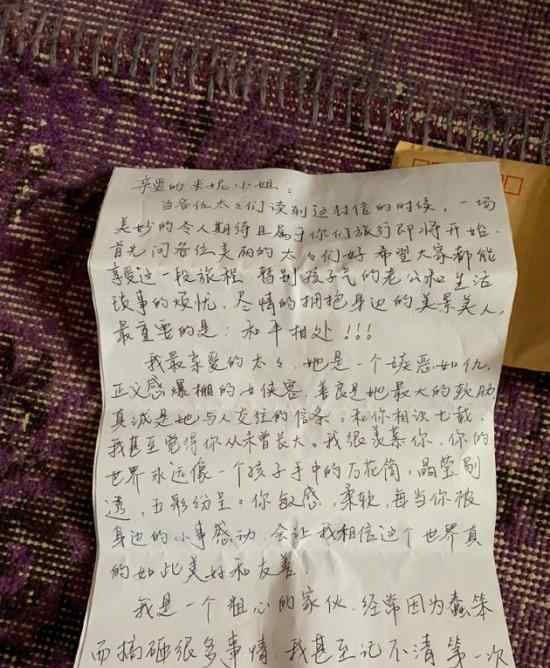 亲爱的米妮小姐:
当各位太太们读到这封信的时候,一场
美妙的令人期待且属于你们旅行即将开始.
首先问各位美丽的太太们好 希望大家都能
享受这一段旅程 暂别孩子气的老公和生活
琐事的烦忧,尽情的拥抱身边的美景美人,
最重要的是:和平相处!!!
我最亲爱的太太,她是一个嫉恶如仇,
正义感爆棚的女侠客,善良是她最大的软肋
真诚是她与人交往的信条,和你相识七载,
我甚至觉得你从未曾长大。我很羡慕你,你的
世界永远像一个孩子手中的万花筒,晶莹剔
透,五彩纷呈。你敏感,柔软,每当你被
身边的小事感动,会让我相信这个世界真
的如此美好和友善!
我是一个粗心的家伙.经常因为蠢笨
而搞砸很多事情,我甚至记不清第一次